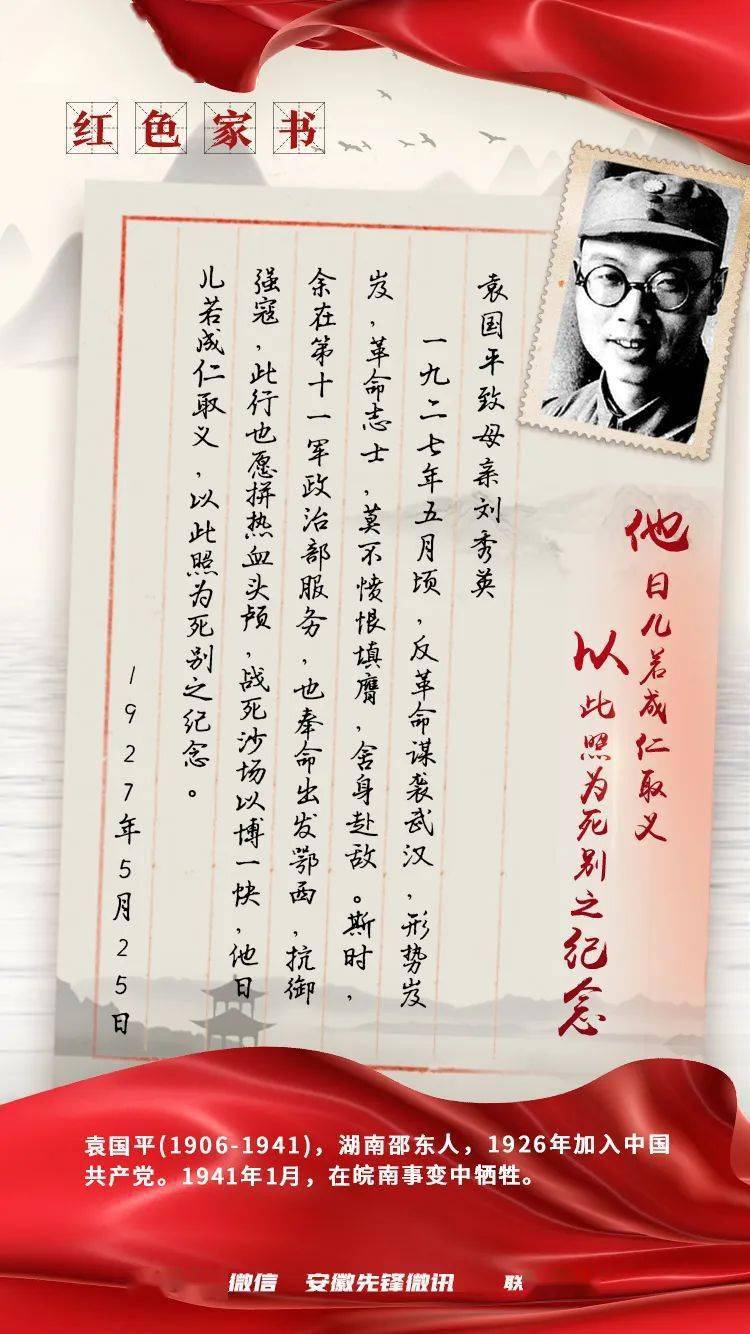 红色家书
袁国平致母亲刘秀英
一九二七年五月顷，反革命谋袭武汉，形势岌
岌，革命志士，莫不愤恨填膺，舍身赴敌。斯时，
余在第十一军政治部服务，也奉命出发鄂西，抗御
强寇，此行也愿拼热血头颅，战死沙场以博一快，他日
儿若成仁取义，以此照为死别之纪念。
1927年5月25日
他日儿若成仁取义
以此照为死别之纪念
袁国平(1906-1941)，湖南邵东人，1926年加入中国
共产党。1941年1月，在皖南事变中牺牲。
微信 安徽先锋微讯 联